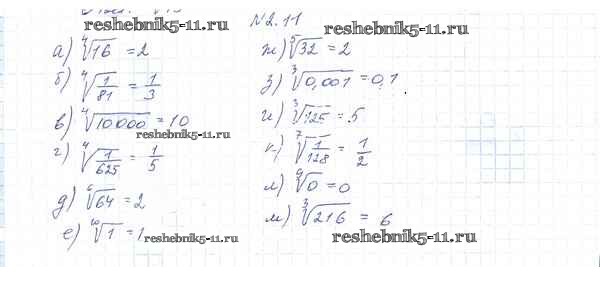 reshebnik5-11.ru
№2.11
reshebnik5-11.ru
а) ⁴√16 = 2
б) ⁴√(1/81) = 1/3
в) ⁴√10000 = 10
reshebnik5-11.ru
г) ⁴√(1/625) = 1/5
д) ⁶√64 = 2
е) ¹⁰√1 = 1
reshebnik5-11.ru
ж) ⁵√32 = 2
з) ³√0,001 = 0,1
и) ³√125 = 5
к) ⁷√(1/128) = 1/2
л) ⁹√0 = 0
м) ³√216 = 6
reshebnik5-11.ru